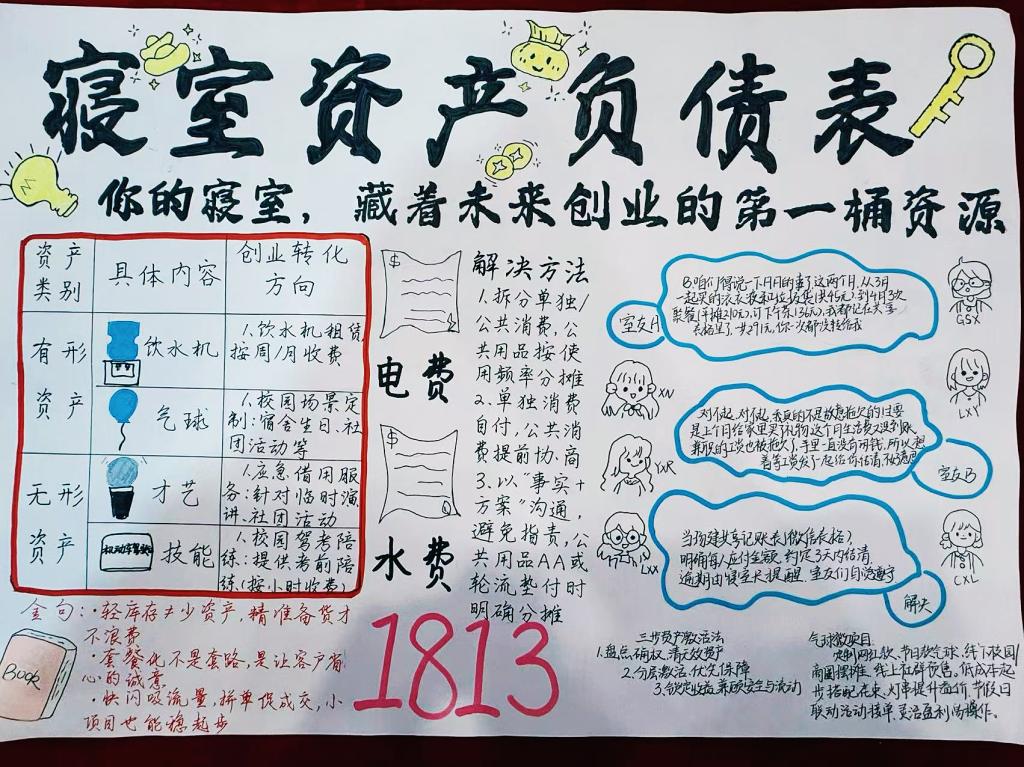 寝室资产负债表
你的寝室，藏着未来创业的第一桶资源
资产类别
具体内容
创业转化方向
有形资产
饮水机
1.饮水机租赁
按周/月收费
气球
1.校园场景定
制:宿舍生日、社
团活动等
无形资产
才艺
1.应急借用服
务:针对临时演
讲、社团活动
技能
1.校园驾考陪
练:提供考前陪
练(按小时收费)
$
电费
$
水费
解决方法
1.拆分单独/
公共消费,公
共用品按使
用频率分摊
2.单独消费
自付,公共消
费提前协、商
3.以“事实+
方案”沟通,
避免指责,公
共用品AA或
轮流垫付时
明确分摊
室友A
一起买的洗衣液和垃圾袋(共45元)到4月3次
GSX
XN
LXY
对不起,对不起,我真的不是故意拖欠的!主要
是上个月给家里买了礼物,这个月生活费又没到账
兼职的工资也被拖欠了,手里一直没有闲钱,所以想
室友B
YXR
LXX
CXL
明确每人应付金额,约定3天内结清
逾期由寝室长提醒,室友们自觉遵守
解决
金句:·轻库存≠少资产,精准备货才
不浪费
·套餐化不是套路,是让客户省
心的诚意
·快闪吸流量,拼单促成交,小
项目也能稳起步
Book
1813
三步资产激活法
1.盘点确权,清无效资产
2.分层激活,优先保障
3.锁定收益,兼顾安全与流动
气球微项目
定制网红款、节日款气球,线下校园/
商圈摆摊,线上社群预售。低成本起
步,搭配花束、灯串提升溢价,节假日
联动活动接单,灵活盈利易操作。